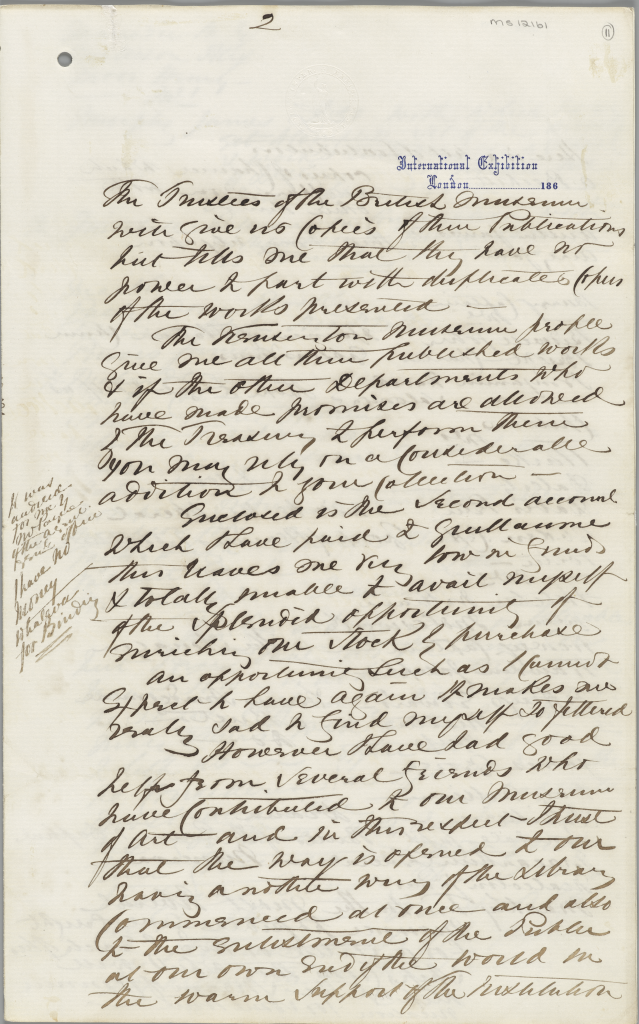 2
MS 12161
11
International Exhibition
London 186
The Trustees of the British Museum
will give no Copies of their Publications
but tells me that they have no
power to part with duplicate Copies
of the works presented —
The Kensinton Museum people
give me all their published works
& if the other Departments who
have made promises are allowed
by the Treasury to perform them
you may rely on a Considerable
addition to your Collection —
Enclosed is the Second account
which I have paid to Guillaume
this leaves me very low in funds
& totaly unable to avail myself
of the Splendid opportunity of
enriching our Stock by purchase
an opportunity Such as I Cannot
Expect to have again It makes me
really Sad to find myself So fettered
However I have had good
help from Several friends who
have Contributed to our Museum
of Art — and in this respect I trust
that the way is opened to our
having another wing of the Library
Commenced at once and also
to the enlistment of the Public
at our own End of the World in
the warm Support of the Institution
It was
I have no
money
whatever
for Binding